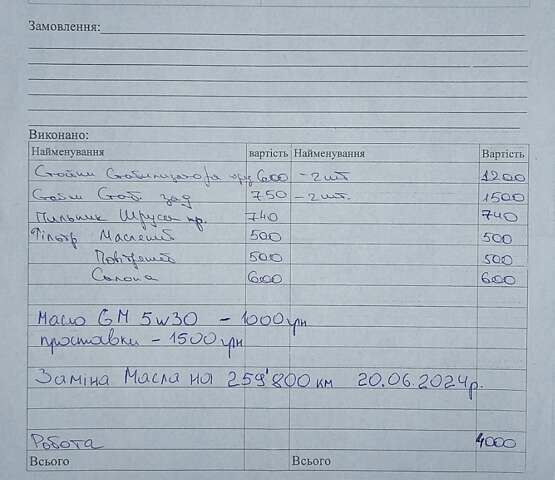 Замовлення:
Виконано:
Найменування вартість Найменування Вартість
Стойки Стабилизатора 600 - 2 шт 1200
Стойки Стаб. зад 750 - 2 шт. 1500
Пильник Шруса пр. 740 740
Фільтр Маслений 500 500
Повітряний 500 500
Салона 600 600
Масло GM 5w30 - 1000 грн
проставки - 1500 грн
Заміна Масла на 259'800 км 20.06.2024р.
Робота 4000
Всього Всього